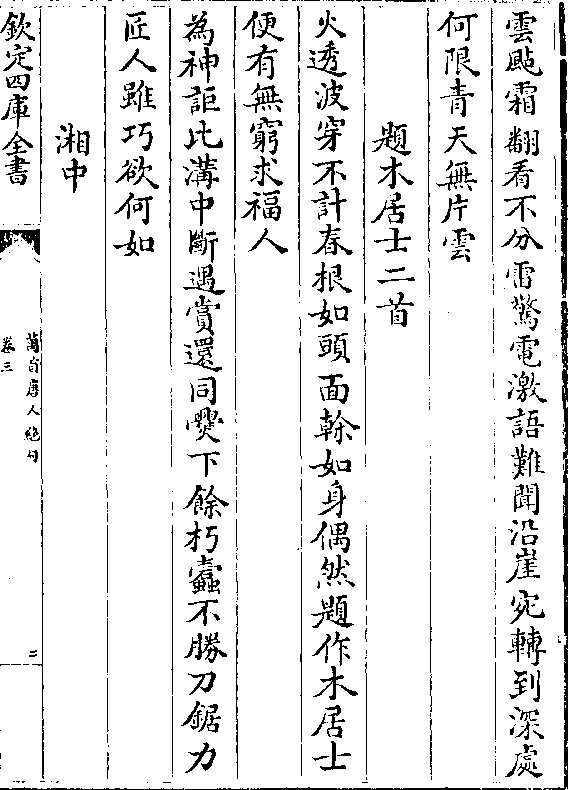 雲颭霜翻看不分雷驚電激語難聞沿崖宛轉到深處
何限青天無片雲
題木居士二首
火透波穿不計春根如頭面榦如身偶然題作木居士
便有無窮求福人
為神詎比溝中斷遇賞還同爨下餘朽蠹不勝刀鋸力
匠人雖巧欲何如
湘中
欽定四庫全書
萬首唐人絶句
卷三
三